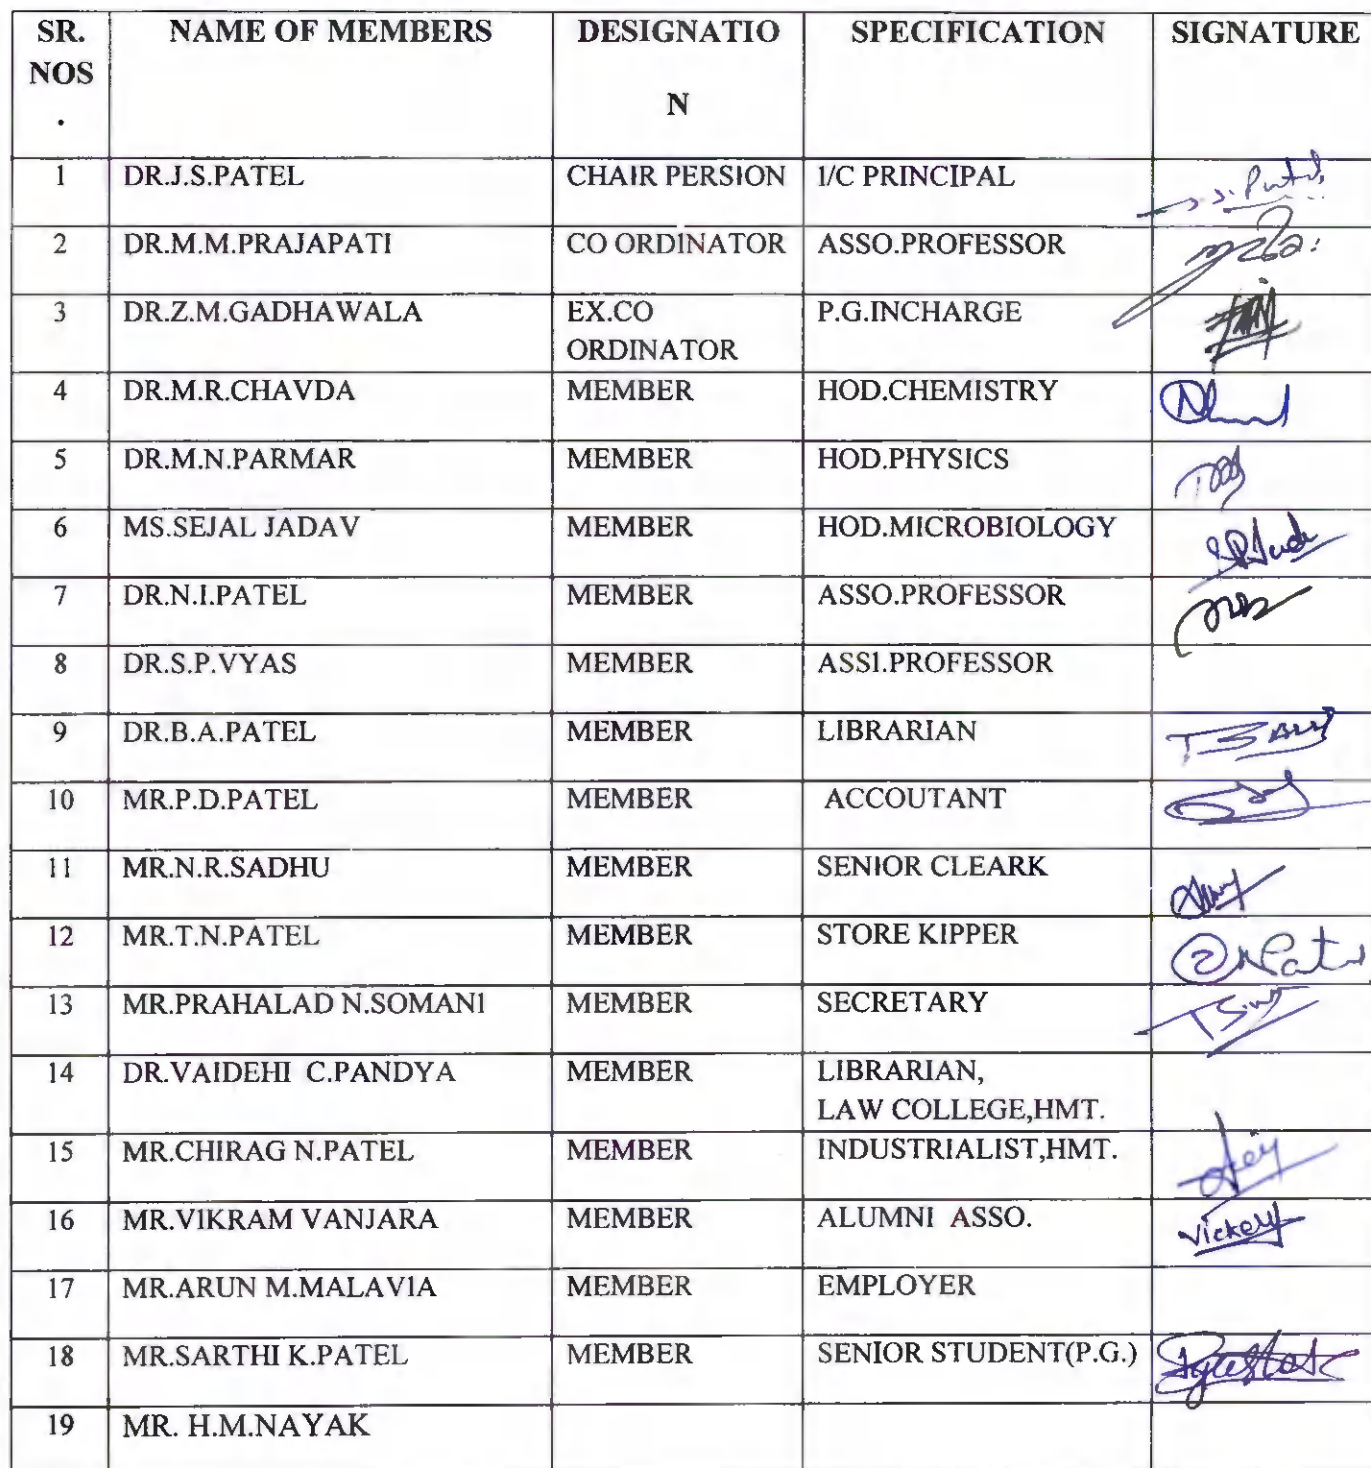 SR. NAME OF MEMBERS DESIGNATIO SPECIFICATION SIGNATURE
NOS
. N
1 DR.J.S.PATEL CHAIR PERSION I/C PRINCIPAL J.S.Patel
2 DR.M.M.PRAJAPATI CO ORDINATOR ASSO.PROFESSOR
3 DR.Z.M.GADHAWALA EX.CO P.G.INCHARGE
ORDINATOR
4 DR.M.R.CHAVDA MEMBER HOD.CHEMISTRY
5 DR.M.N.PARMAR MEMBER HOD.PHYSICS
6 MS.SEJAL JADAV MEMBER HOD.MICROBIOLOGY
7 DR.N.I.PATEL MEMBER ASSO.PROFESSOR
8 DR.S.P.VYAS MEMBER ASSI.PROFESSOR
9 DR.B.A.PATEL MEMBER LIBRARIAN
10 MR.P.D.PATEL MEMBER ACCOUTANT
11 MR.N.R.SADHU MEMBER SENIOR CLEARK
12 MR.T.N.PATEL MEMBER STORE KIPPER
13 MR.PRAHALAD N.SOMANI MEMBER SECRETARY
14 DR.VAIDEHI C.PANDYA MEMBER LIBRARIAN,
LAW COLLEGE,HMT.
15 MR.CHIRAG N.PATEL MEMBER INDUSTRIALIST,HMT.
16 MR.VIKRAM VANJARA MEMBER ALUMNI ASSO.
17 MR.ARUN M.MALAVIA MEMBER EMPLOYER
18 MR.SARTHI K.PATEL MEMBER SENIOR STUDENT(P.G.)
19 MR. H.M.NAYAK